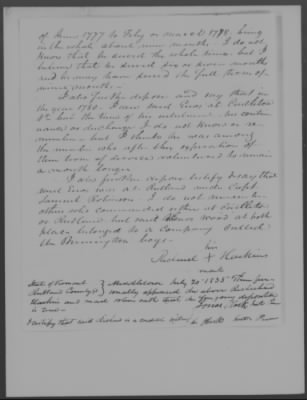 of June 1777 to Feby or march 1778, being
in the whole about nine months. I do not
know that he served the whole time but I
believe that he served six or seven months
and he may have served the full term of
nine months.
I also further depose and say that in
the year 1780. I saw said Enos at Castleton
Vt. but the time of his enlistment, his contin-
uance or discharge I do not know or re-
member but I think he was among
the number who after they expiration of
their term of service volunteered to remain
a month longer
I also further depose & testify & say that
said Enos was at Rutland under Capt.
Samuel Robinson. I do not remember
others who commanded either at Castleton
or Rutland but said Enos Wood at both
places belonged to a Company called
the Bennington boys.
his
Richard + Haskins
mark
State of Vermont
Rutland County ss } Middletown July 20th 1835 Then per-
sonally appeared the above Richard
Haskins and made oath that the foregoing deposition
is true.
I certify that said Richard is a credible witness